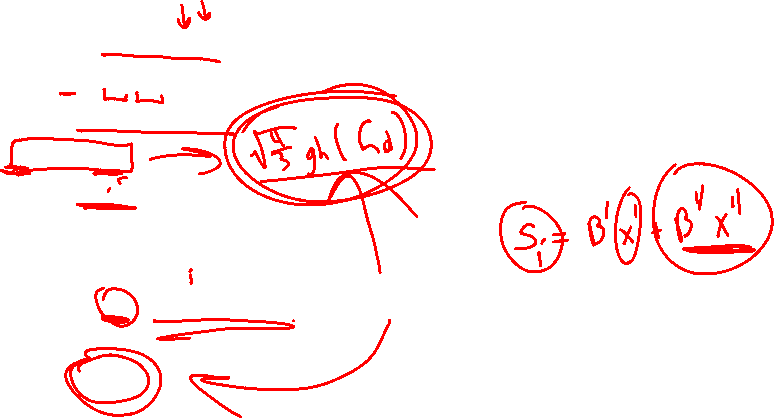 √4/3 gh ( Cd )
Si = B' x' = B" x"